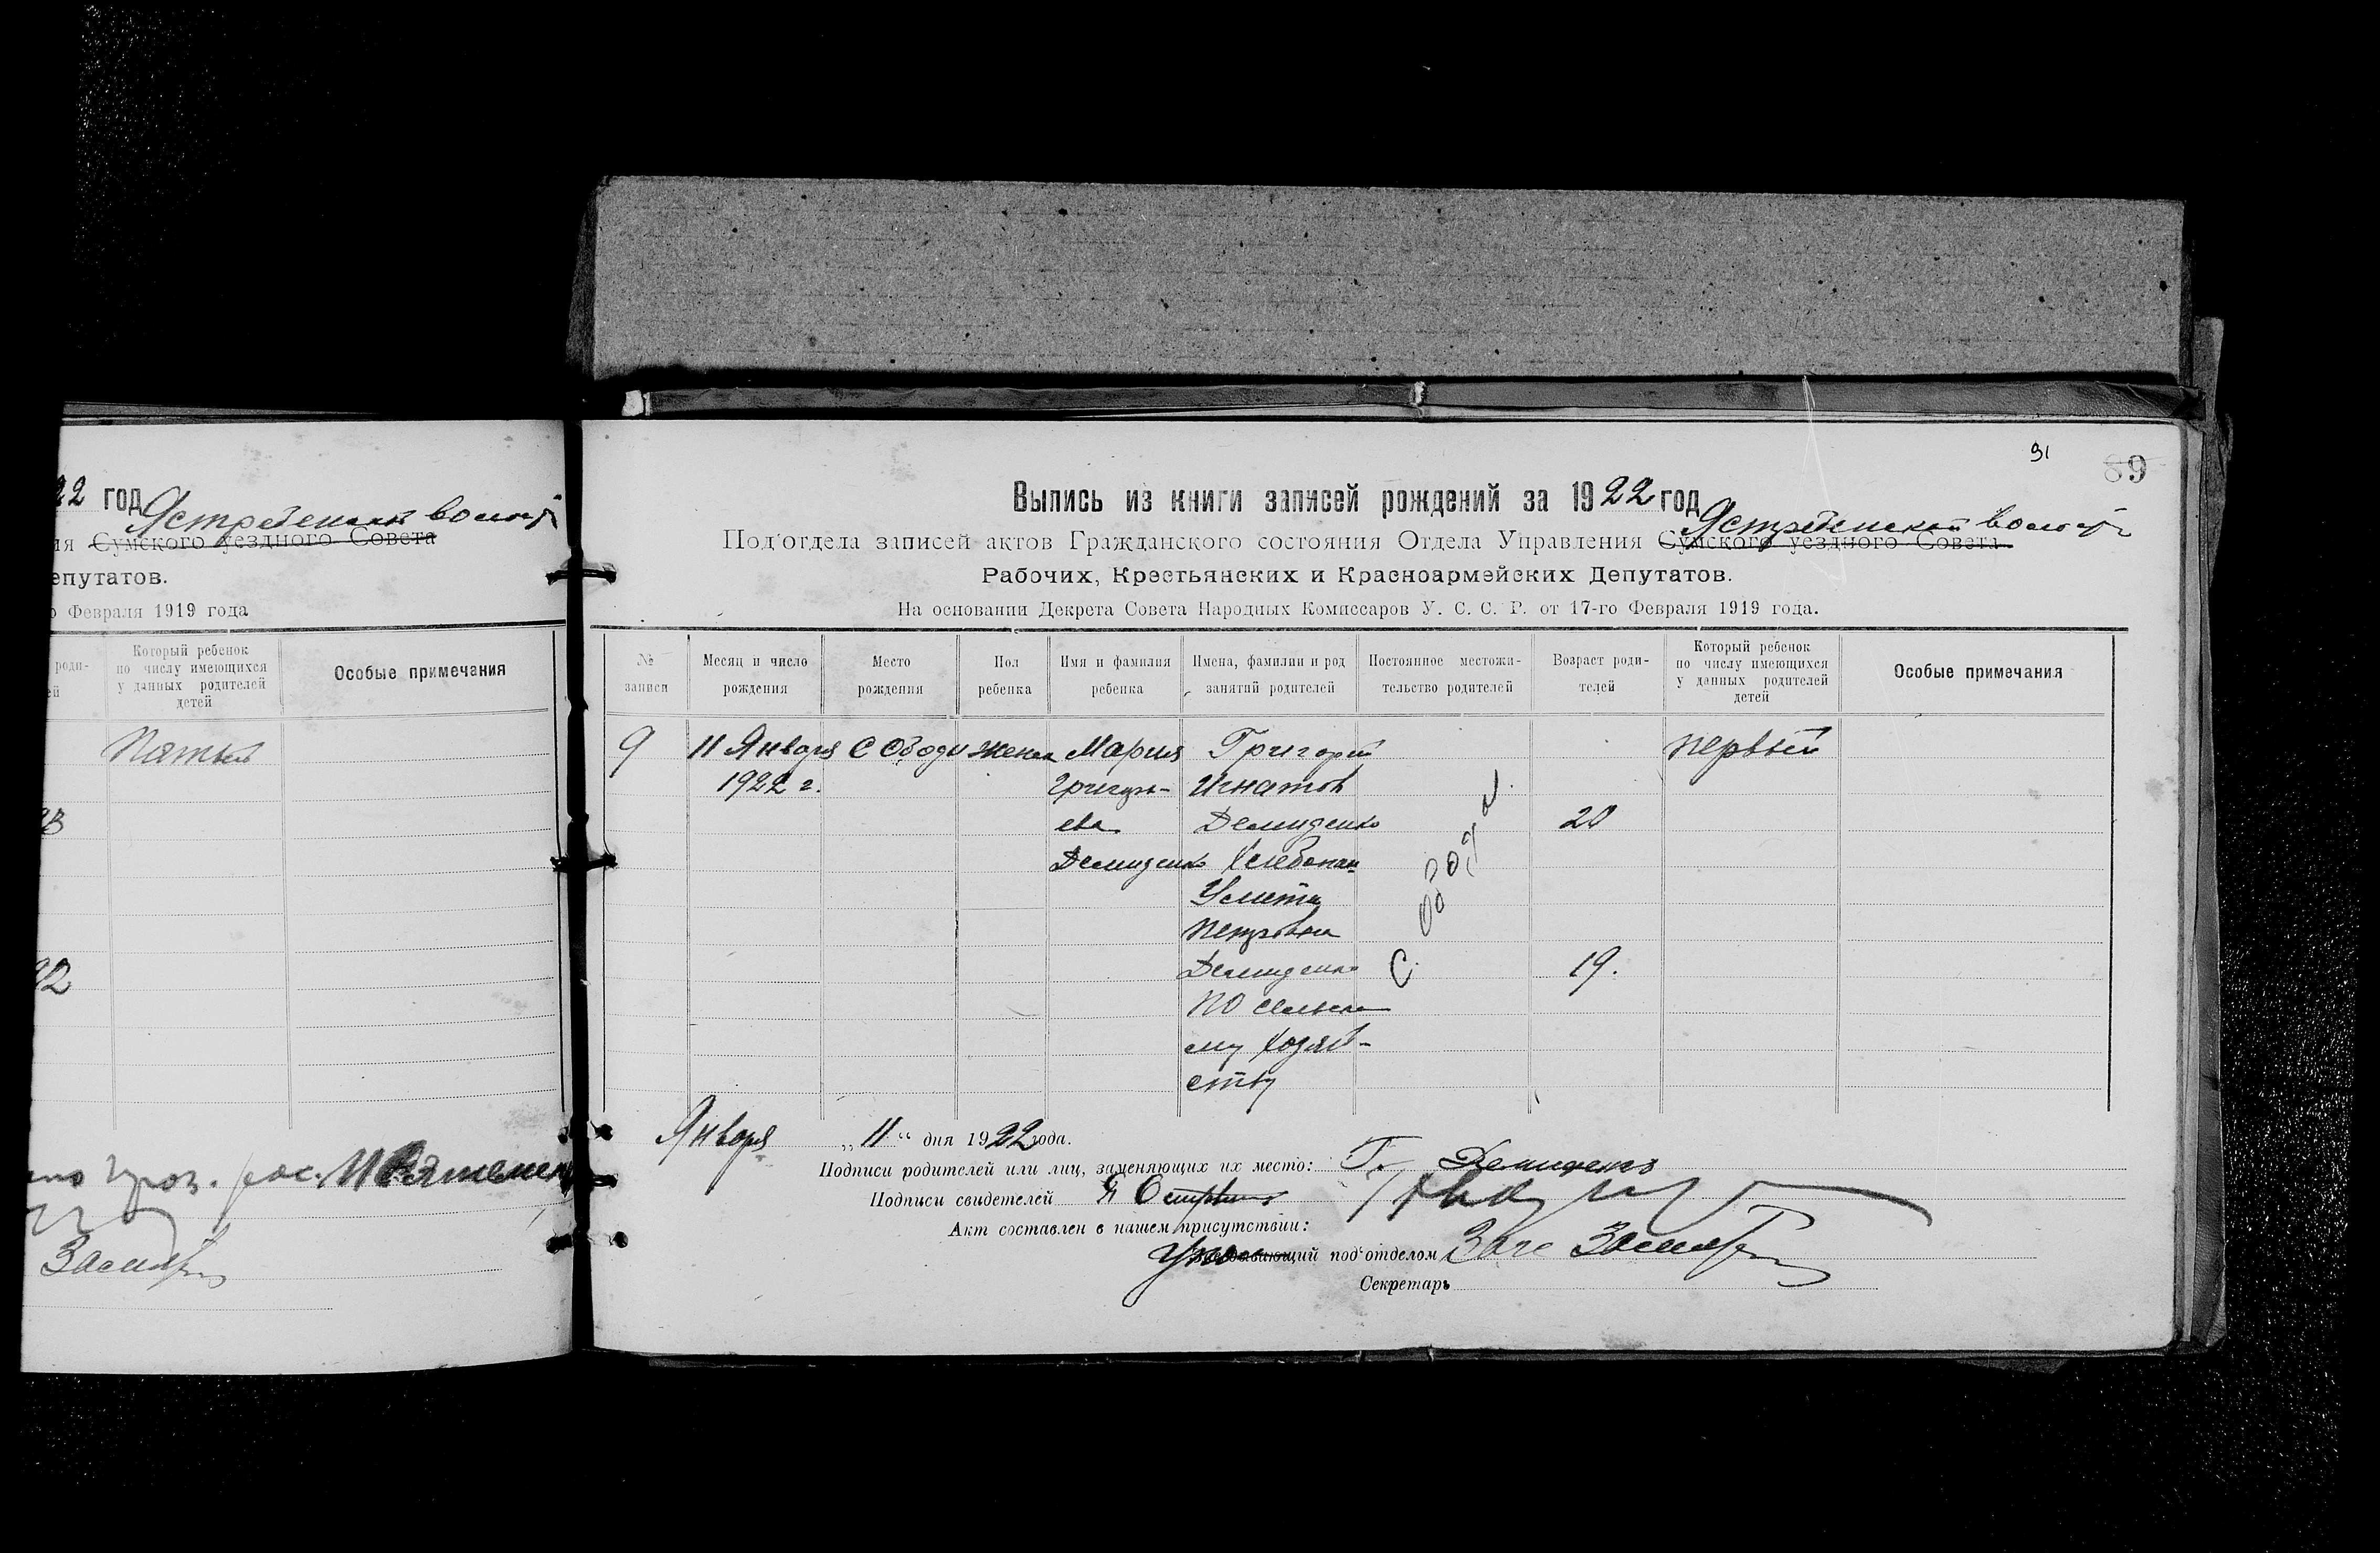 22 год Ястребенской волост
ия Сумского уездного Совета
епутатов.
о Февраля 1919 года
роди-
ей
Который ребенок
по числу имеющихся
у данных родителей
детей
Особые примечания
Пятый
93
92
31
89
Выпись из книги записей рождений за 1922 год
Ястребенской волост
Под'отдела записей актов Гражданского состояния Отдела Управления Сумского уездного Совета
Рабочих, Крестьянских и Красноармейских Депутатов.
На основании Декрета Совета Народных Комиссаров У. С. С. Р. от 17-го Февраля 1919 года.
№
записи
Месяц и число
рождения
Место
рождения
Пол
ребенка
Имя и фамилия
ребенка
Имена, фамилии и род
занятий родителей
Постоянное местожи-
тельство родителей
Возраст роди-
телей
Который ребенок
по числу имеющихся
у данных родителей
детей
Особые примечания
9
11 Января
1922 г.
С Ободы
женск
Мария
Григорь-
ева
Демиденко
Григорий
Игнатов
Демиденко
Хлебопаш
Петровна
Демиденко
по сельско
му хозяй-
ству
С. Ободы
20
19.
первый
Января „11“ дня 1922 года.
Подписи родителей или лиц, заменяющих их место: Г. Демиденко
Подписи свидетелей
Акт составлен в нашем присутствии:
под'отделом
Секретарь